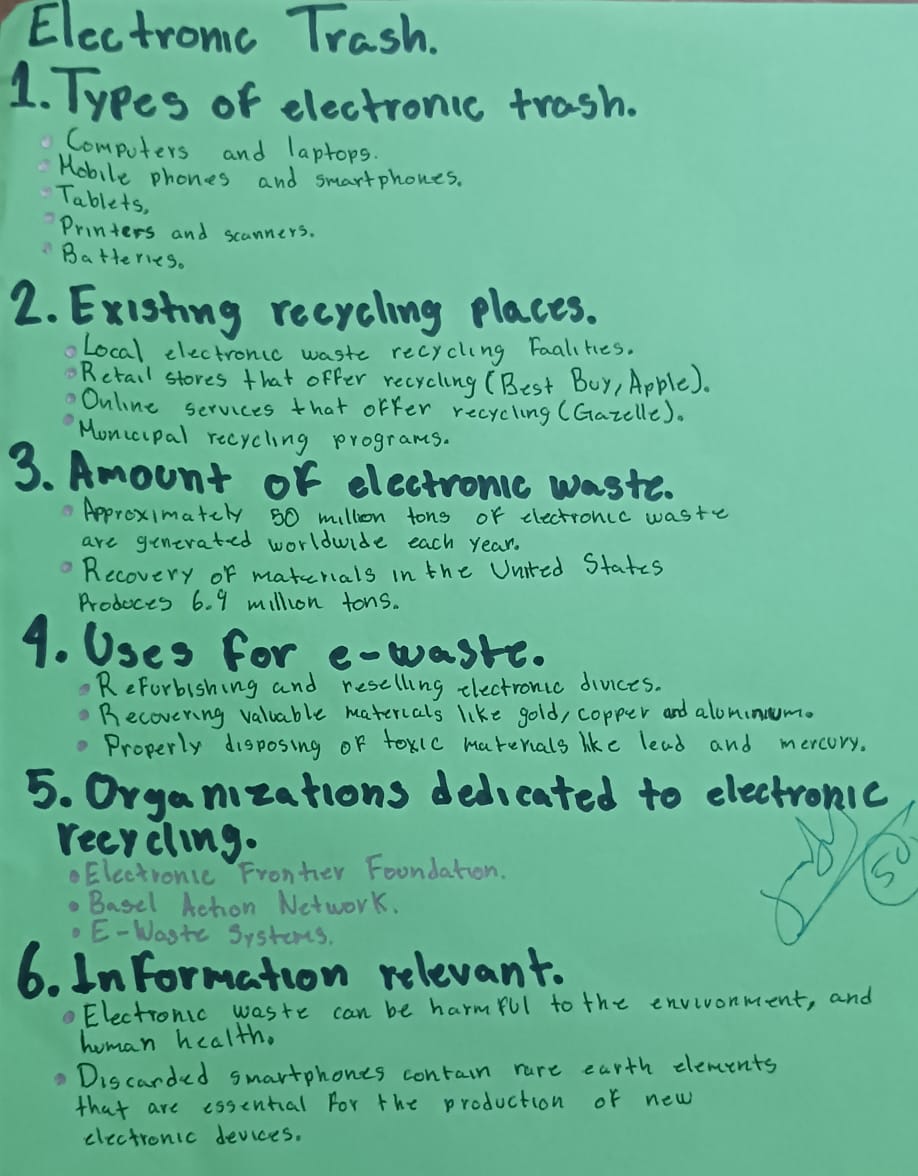 Electronic Trash.
1. Types of electronic trash.
• Computers and laptops.
• Mobile phones and smartphones.
• Tablets,
• Printers and scanners.
• Batteries.
2. Existing recycling places.
• Local electronic waste recycling Facilities.
• Retail stores that offer recycling (Best Buy, Apple).
• Online services that offer recycling (Gazelle).
• Municipal recycling programs.
3. Amount of electronic waste.
• Approximately 50 million tons of electronic waste
are generated worldwide each year.
• Recovery of materials in the United States
Produces 6.9 million tons.
4. Uses for e-waste.
• Refurbishing and reselling electronic divices.
• Recovering valuable materials like gold, copper and aluminium.
• Properly disposing of toxic materials like lead and mercury.
5. Organizations dedicated to electronic
recycling.
• Electronic Frontier Foundation.
• Basel Action Network.
• E-Waste Systems.
6. Information relevant.
• Electronic waste can be harmful to the environment, and
human health.
• Discarded smartphones contain rare earth elements
that are essential for the production of new
electronic devices.